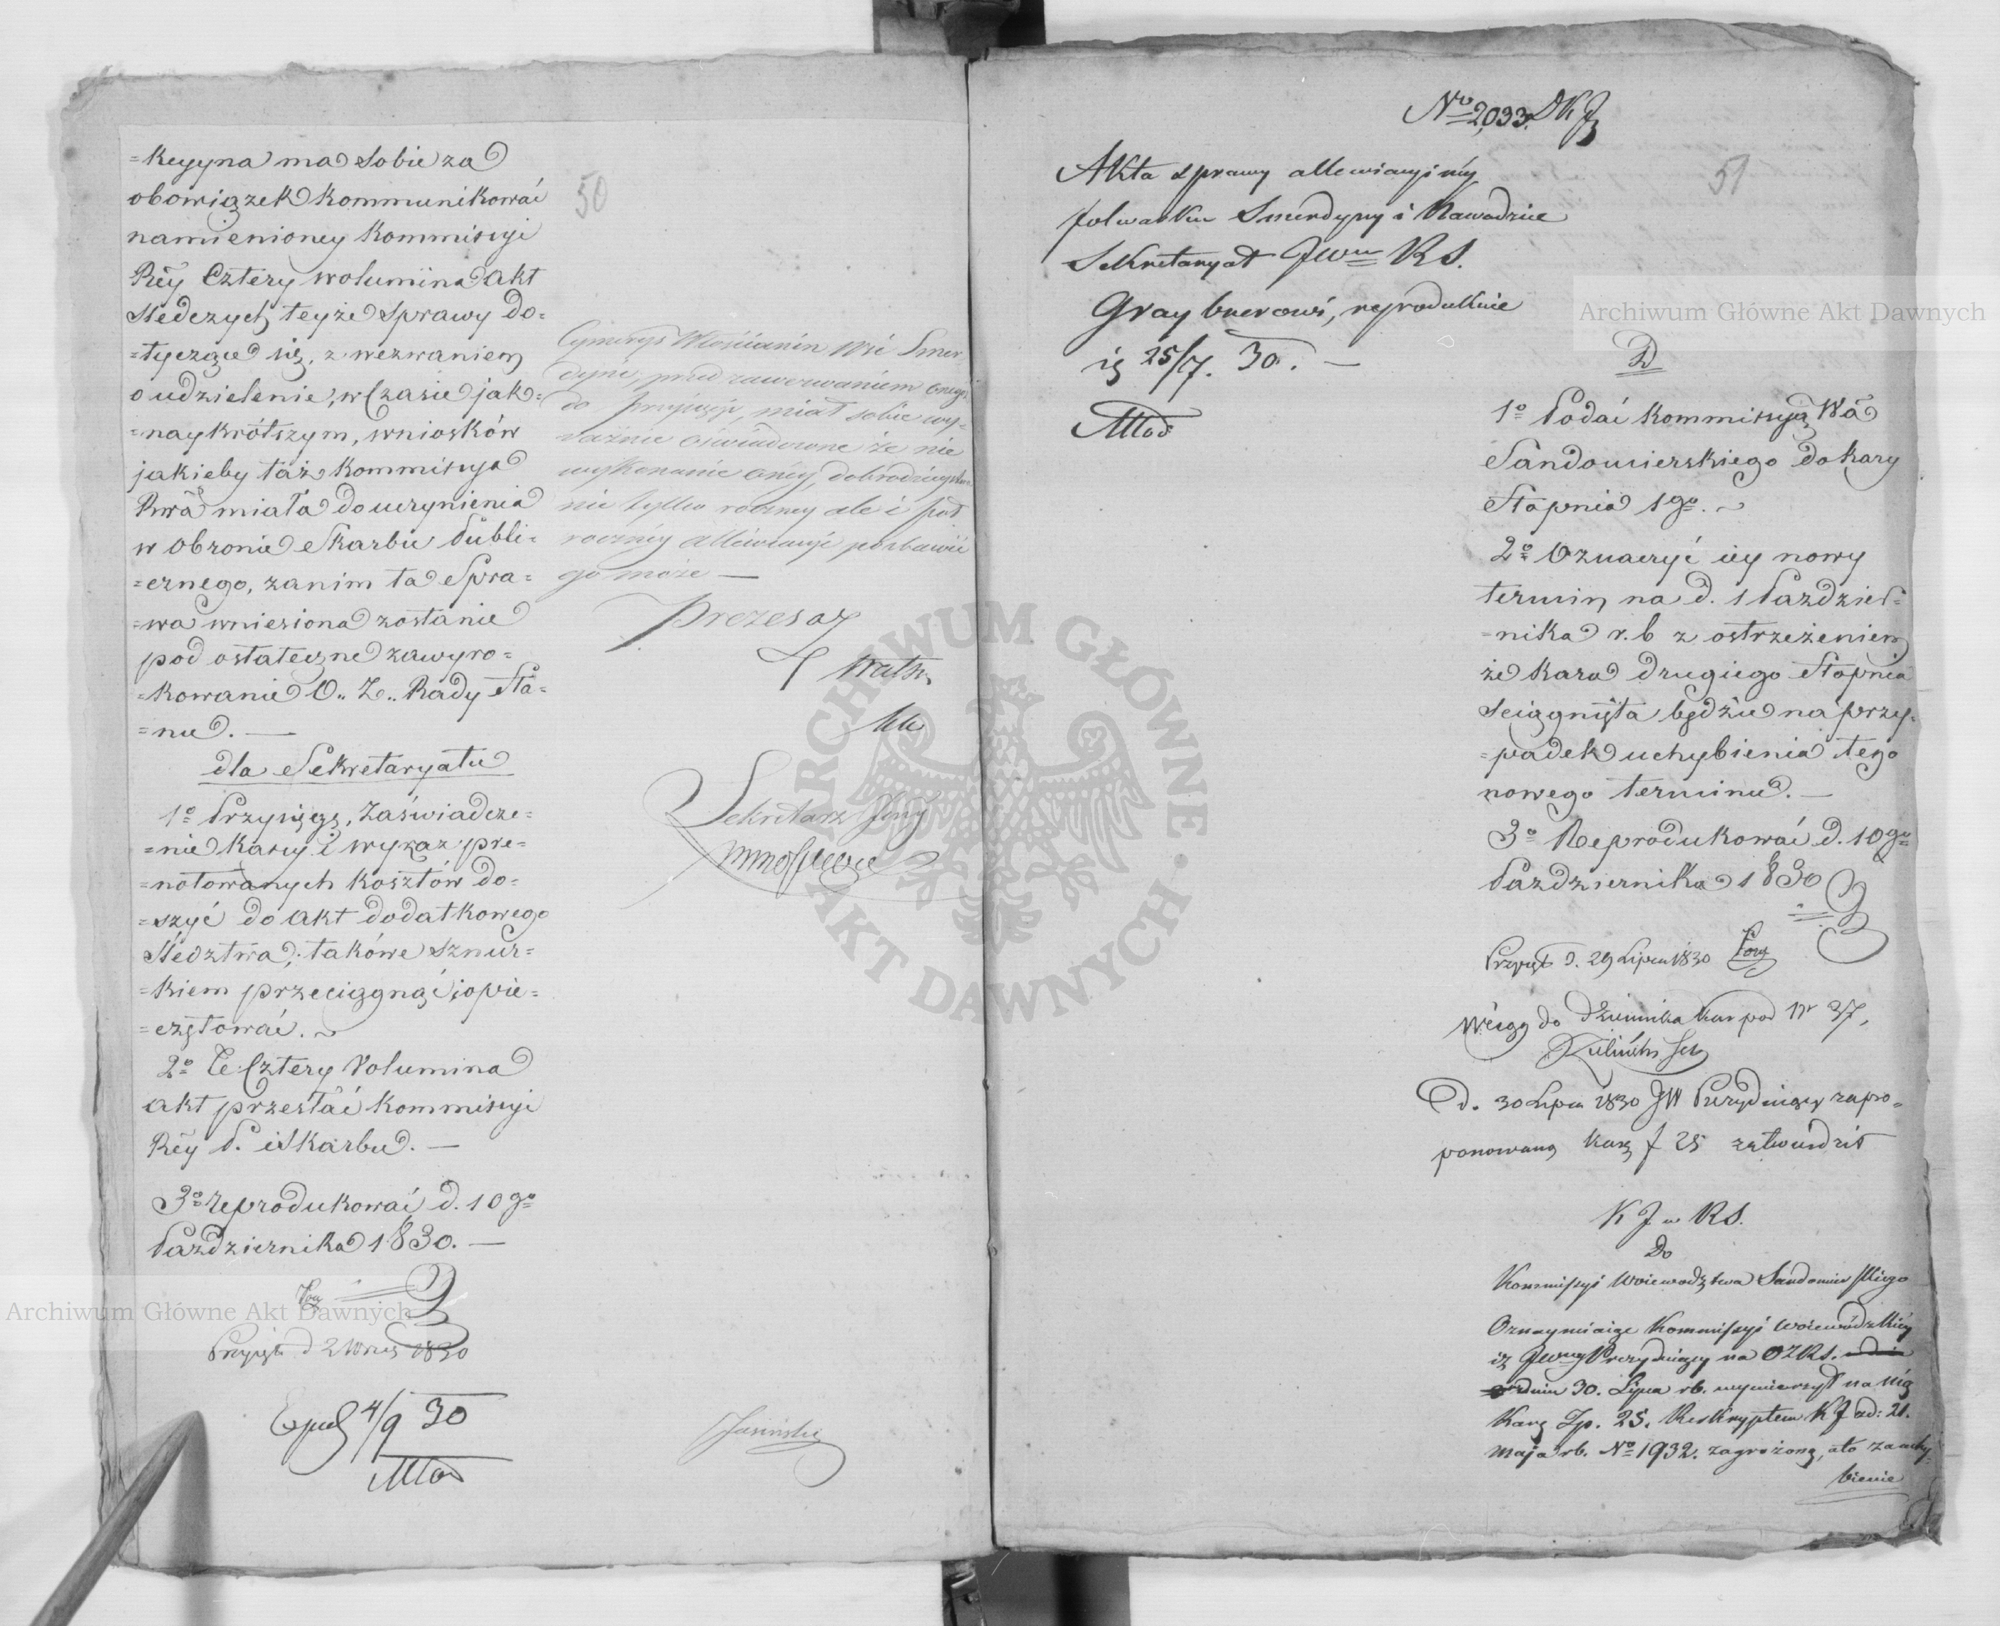 50
=kcyyna ma sobie za
obowiązek kommunikować
namienioney Kommissyi
Rẽy Cztery wolumina akt
śledczych teyże sprawy do=
=tyczące się, z wezwaniem
o udzielenie, w Czasie jak=
=naykrótszym, wniosków
jakieby taż Kommissya
Rwã miała do uczynienia
w Obronie Skarbu Publi=
=cznego, zanim ta Spra=
=wa wniesiona zostanie
pod ostateczne zawyro=
=kowanie O.. Z.. Rady Sta=
=nu. —
dla Sekretaryatu
1º Przysięgę, Zaświadcze=
=nie Kassy i wykaz pre=
=notowanych kosztów do=
=szyć do akt dodatkowego
śledztwa; takowe sznur=
=kiem przeciągnąć i opie=
=czętować. ~
2º Te Cztery Volumina
akt przesłać Kommissyi
Rẽy P. i Skarbu. —
3º reprodukować d. 10 go
Października 1830. —
Przyięto d 2 Wrześ 1830
Exped 4/9 30
Włościanin Wsi Smer=
dyni, przed zawezwaniem onego
do przysięgi, miał sobie wy=
raźnie oświadczone że nie
wykonanie onéy, dobrodzieystwa
nie tylko roczney ale i pół
roczney allewiacyi pozbawić
go może —
Prezesa
Sekretarz Jlny
Jasiński
Nro 2,033. DKJ
51
Akta sprawy allewiacyiney
folwarku Smerdyny i Nawodzice
Sekretaryat JWu RS.
Graybnerowi, reprodukuie
ię 25/7. 30. —
D
1º Podać Kommissyią Wã
Sandomierskiego do kary
Stopnia 1go. ~
2º Oznaczyć iey nowy
termin na d. 1 Paździer=
=nika r. b z ostrzeżeniem
że kara drugiego Stopnia
ściągnięta będzie na przy=
=padek uchybienia tego
nowego terminu. —
3º Reprodukować d. 10go
Października 1830
Przyięto d. 29 Lipca 1830
Wciągn do dziennika kar pod Nr 37,
d. 30 Lipca 1830 JW Prezyduiący zapro=
ponowaną karę f 25 zatwierdził
K J w RS.
Do
Kommissyi Woiewództwa Sandomierskiego
Oznaymiaiąc Kommissyi Woiewódzkiéy
iż JWny Prezyduiący na OZRS.
dniu 30. Lipca rb. wymierzył na nią
Karę Zp. 25. Reskryptem KJ ad: 21.
Maja rb. Nº 1932. zagrożoną, a to za uchy=
bienie
Archiwum Główne Akt Dawnych
Archiwum Główne Akt Dawnych
ARCHIWUM GŁÓWNE AKT DAWNYCH